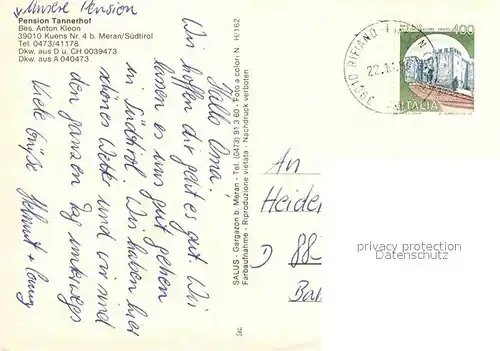 Unsere Pension
Pension Tannerhof
Bes. Anton Kleon
39010 Kuens Nr. 4 b. Meran/Südtirol
Tel. 0473/41178
Dkw. aus D u. CH 0039473
Dkw. aus A 040473
Hallo Oma.
Wir hoffen dir geht es gut. Wir
lassen es uns gut gehen
in Südtirol. Wir haben hier
schönes Wetter und wir sind
den ganzen Tag unterwegs
Viele Grüße Helmut +
SALUS - Gargazon b. Meran - Tel. (0473) 9 13 60 - Foto a colori: N H/162
Farbaufnahme - Riproduzione vietata - Nachdruck verboten
39010 RIFIANO
22.1
400
ITALIA
An
Heide
D 88
privacy protection
Datenschutz